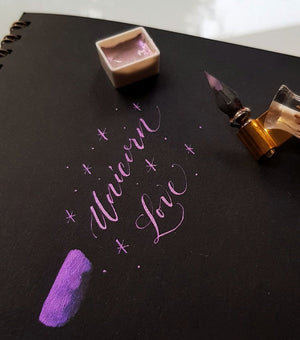 Unicorn
Love